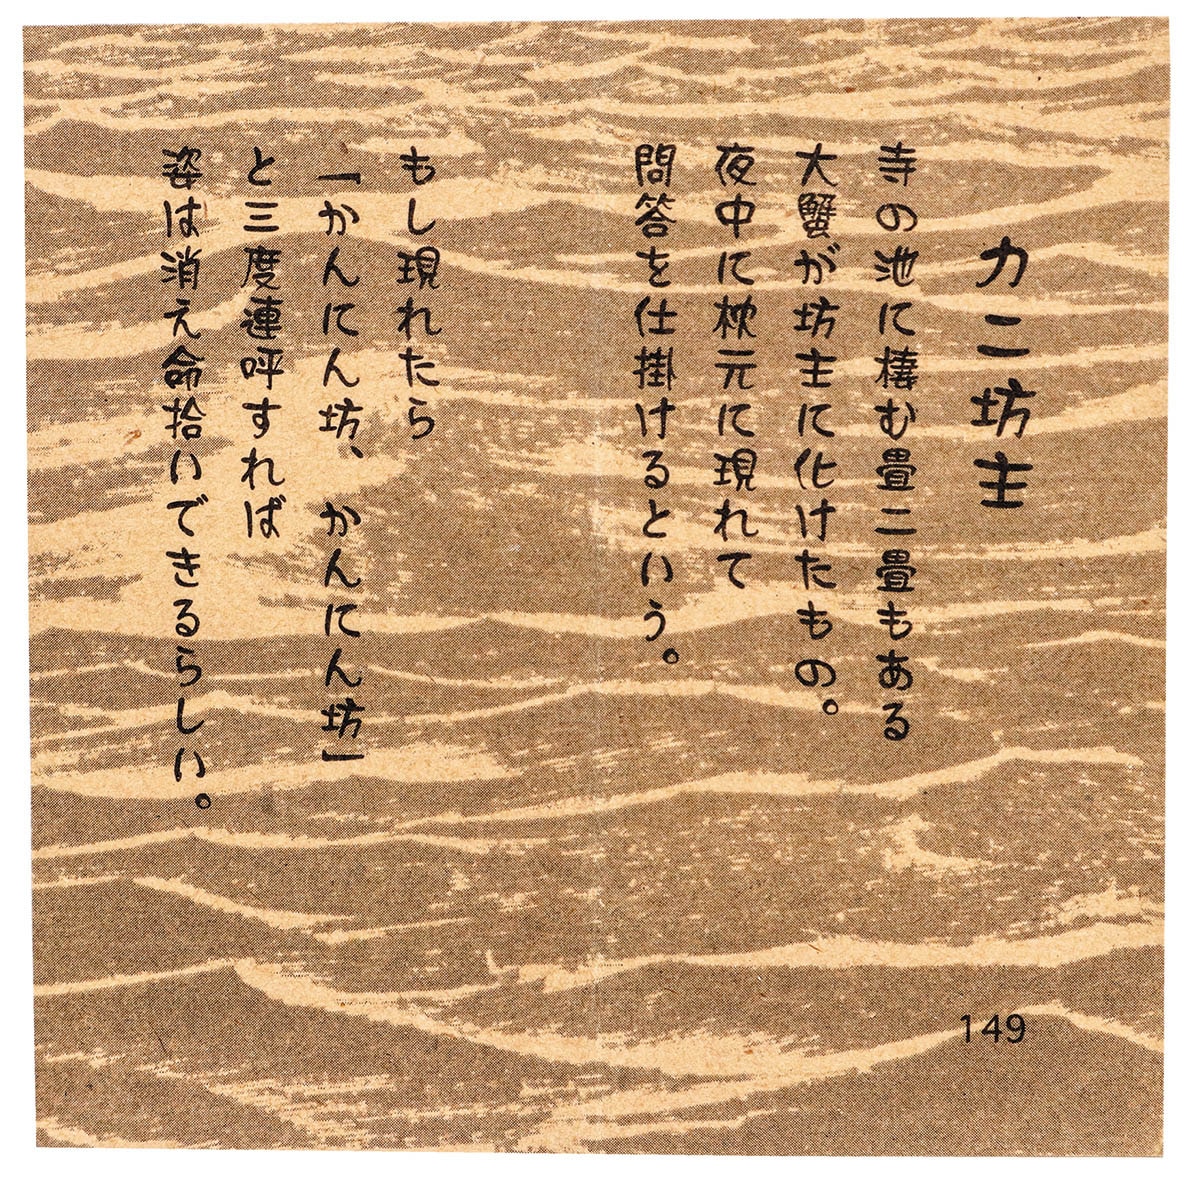 カニ坊主
寺の池に棲む畳二畳もある
大蟹が坊主に化けたもの。
夜中に枕元に現れて
問答を仕掛けるという。
もし現れたら
「かんにん坊、かんにん坊」
と三度連呼すれば
姿は消え命拾いできるらしい。
149